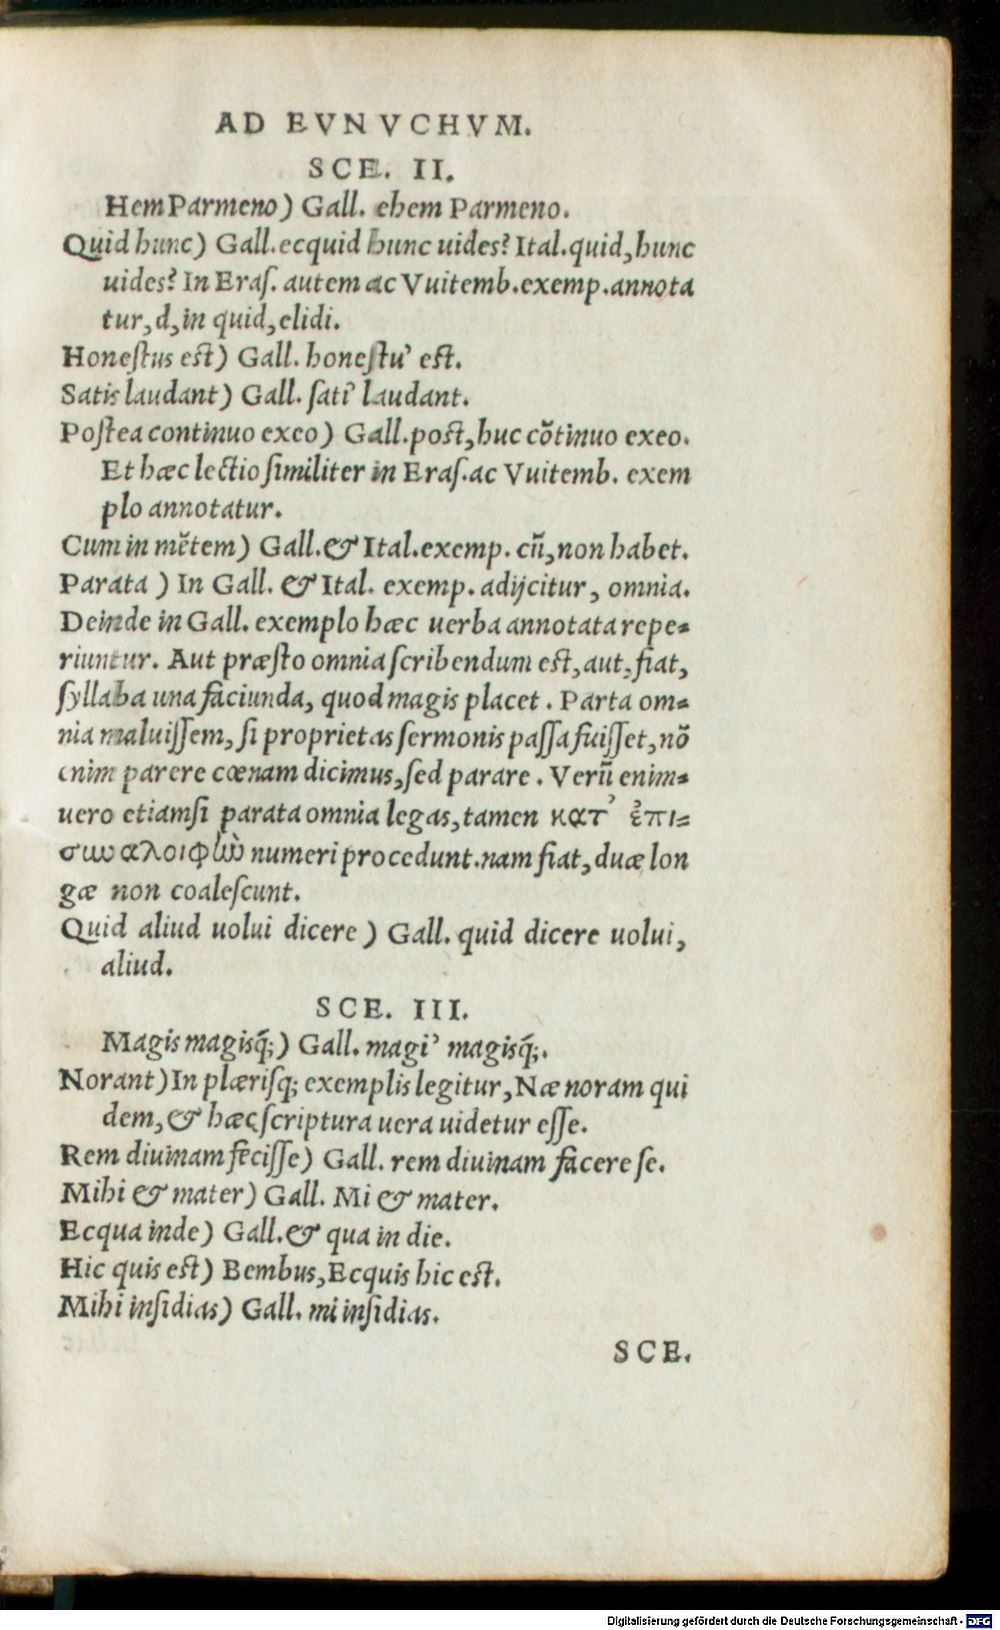 AD EVNVCHVM.
SCE. II.
Hem Parmeno) Gall. ehem Parmeno.
Quid hunc) Gall. ecquid hunc uides? Ital. quid, hunc
uides? In Eraſ. autem ac Vuitemb. exemp. annota
tur, d, in quid, elidi.
Honeſtus eſt) Gall. honeſtu' eſt.
Satis laudant) Gall. ſati' laudant.
Poſtea continuo exeo) Gall. poſt, huc cõtinuo exeo.
Et hæc lectio ſimiliter in Eraſ. ac Vuitemb. exem
plo annotatur.
Cum in mẽtem) Gall. & Ital. exemp. cũ, non habet.
Parata) In Gall. & Ital. exemp. adijcitur, omnia.
Deinde in Gall. exemplo hæc uerba annotata repe-
riuntur. Aut præſto omnia ſcribendum eſt, aut, fiat,
ſyllaba una faciunda, quod magis placet. Parta om-
nia maluiſſem, ſi proprietas ſermonis paſſa fuiſſet, nõ
enim parere cœnam dicimus, ſed parare. Verũ enim-
uero etiamſi parata omnia legas, tamen κατ' ἐπι-
συναλοιφὼ numeri procedunt. nam fiat, duæ lon
gæ non coaleſcunt.
Quid aliud uolui dicere) Gall. quid dicere uolui,
aliud.
SCE. III.
Magis magisq́;) Gall. magi' magisq́;.
Norant) In plæriſq; exemplis legitur, Næ noram qui
dem, & hæc ſcriptura uera uidetur eſſe.
Rem diuinam feciſſe) Gall. rem diuinam facere ſe.
Mihi & mater) Gall. Mi & mater.
Ecqua inde) Gall. & qua in die.
Hic quis eſt) Bembus, Ecquis hic eſt.
Mihi inſidias) Gall. mi inſidias.
SCE.
Digitalisierung gefördert durch die Deutsche Forschungsgemeinschaft - DFG